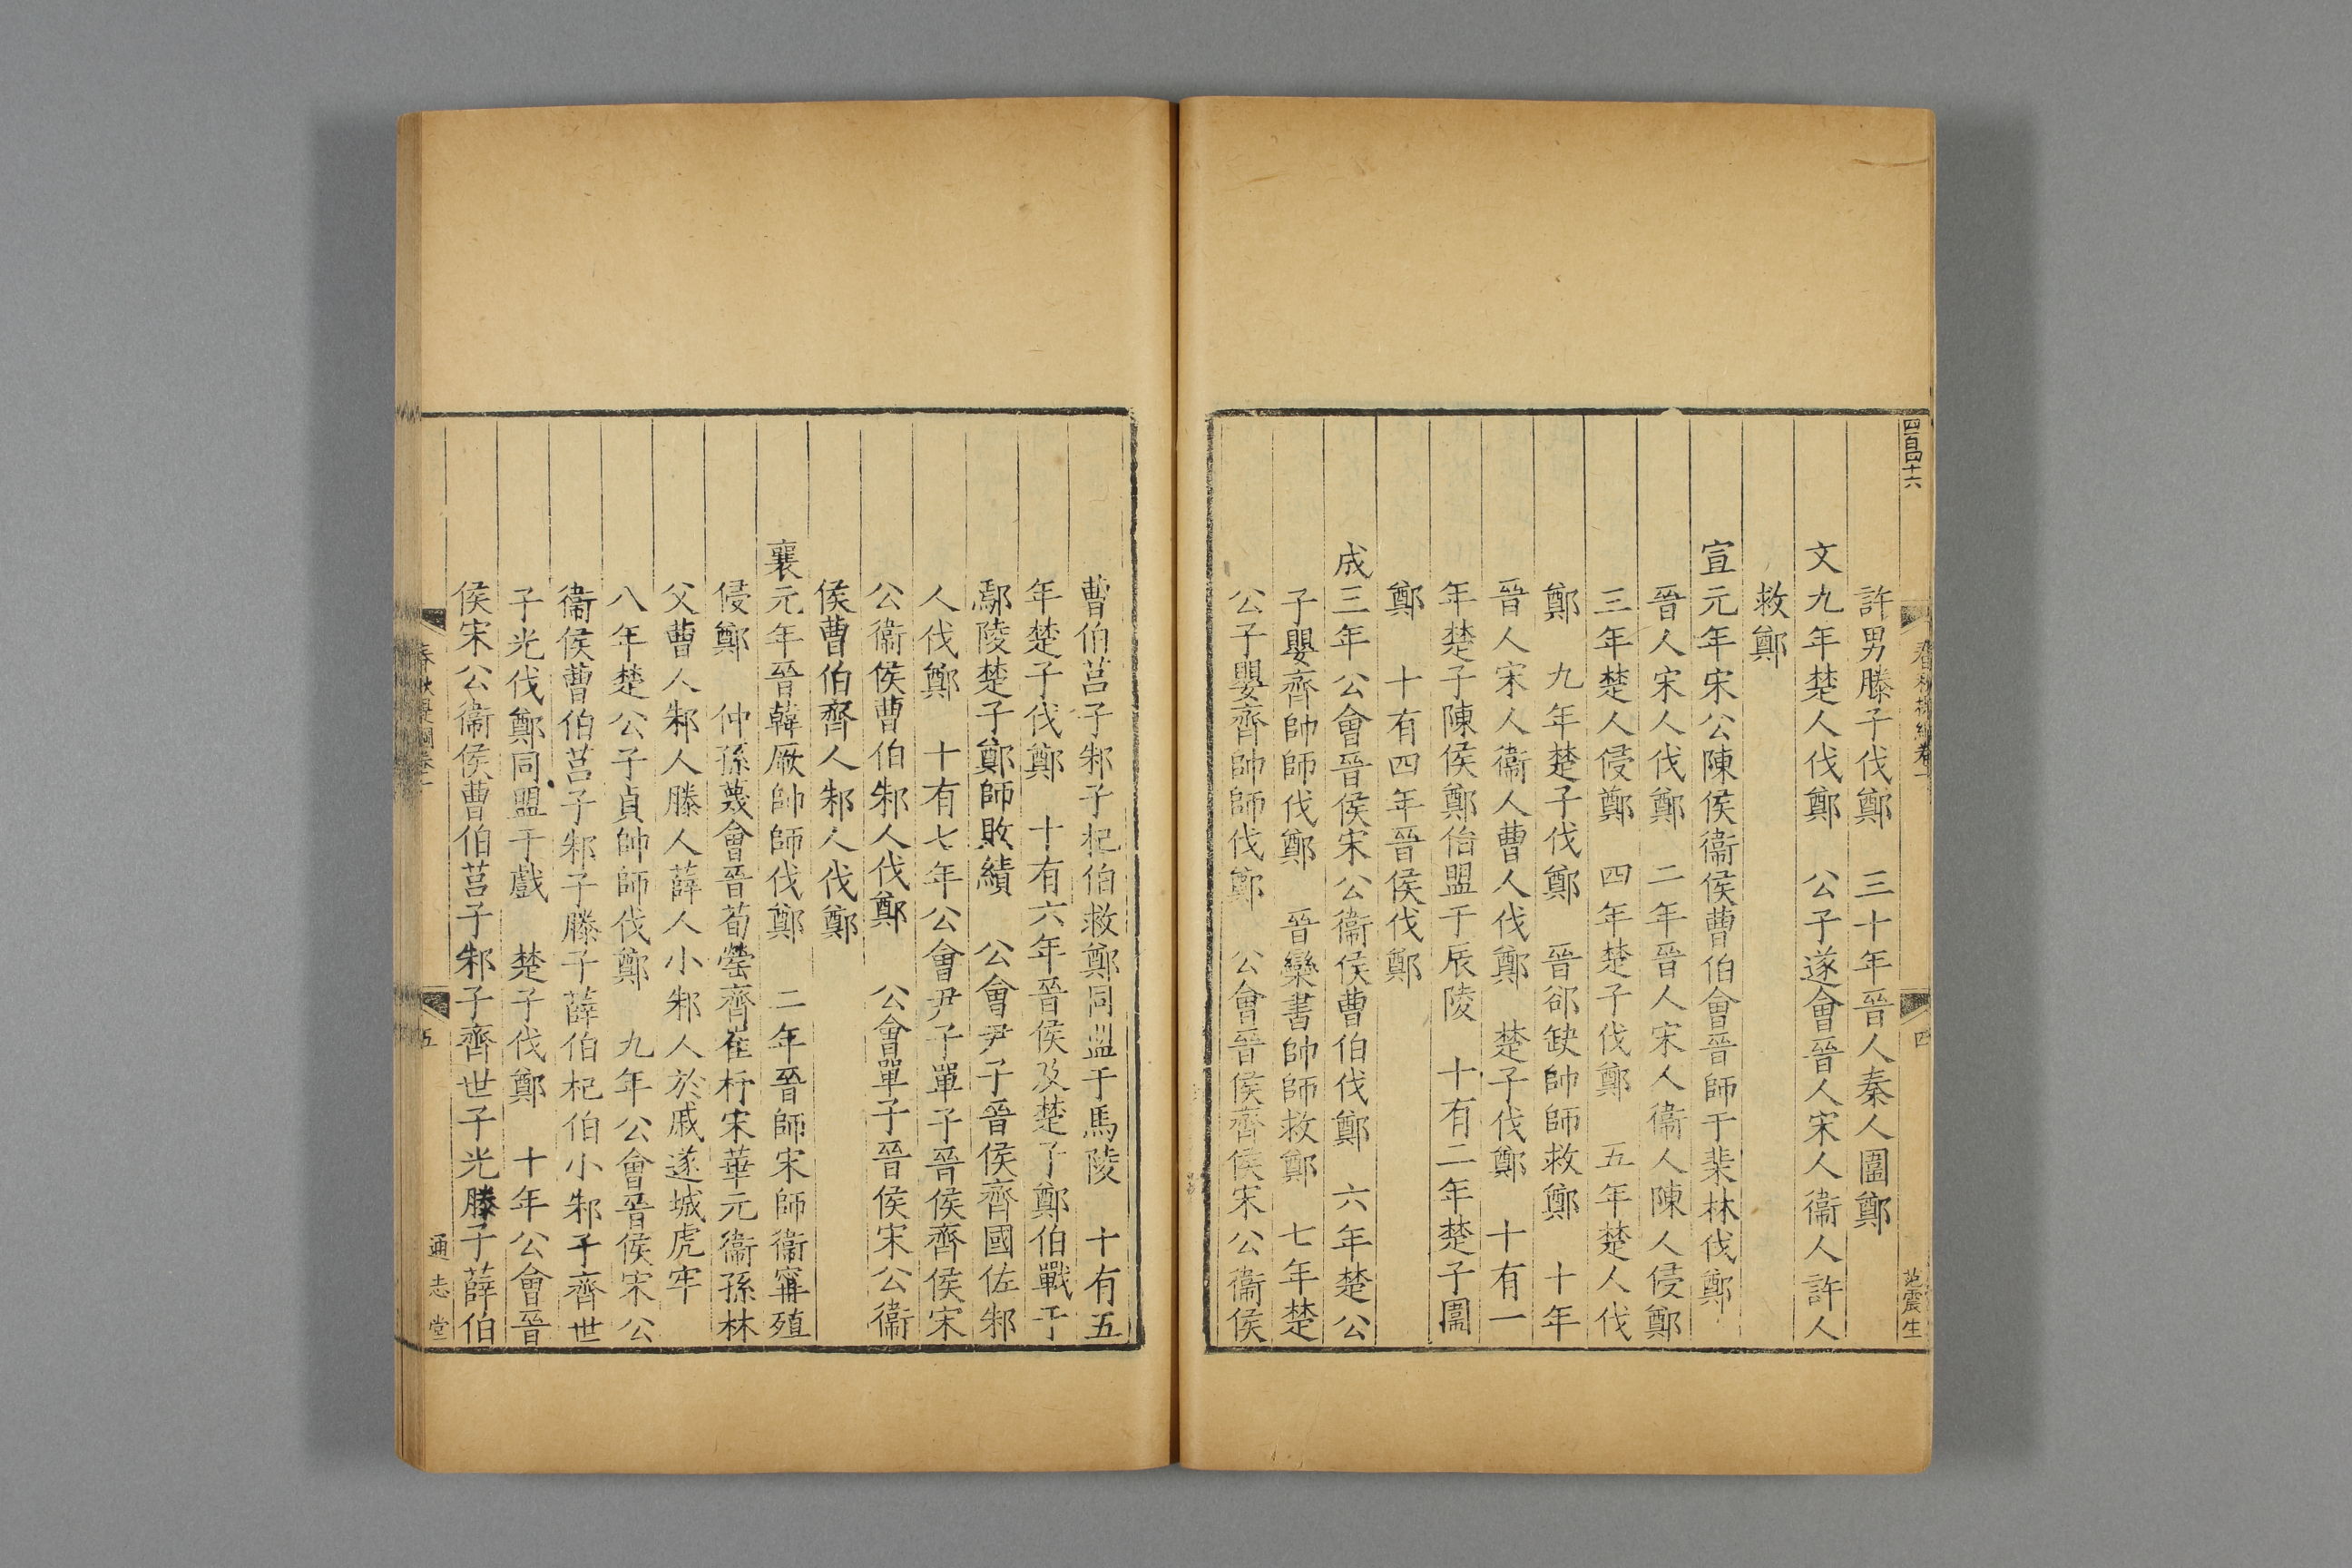 四百四十六
許男滕子伐鄭　三十年晉人秦人圍鄭
文九年楚人伐鄭　公子遂會晉人宋人衞人許人
救鄭
宣元年宋公陳侯衞侯曹伯會晉師于棐林伐鄭
晉人宋人伐鄭　二年晉人宋人衞人陳人侵鄭
三年楚人侵鄭　四年楚子伐鄭　五年楚人伐
鄭　九年楚子伐鄭　晉郤缺帥師救鄭　十年
晉人宋人衞人曹人伐鄭　楚子伐鄭　十有一
年楚子陳侯鄭伯盟于辰陵　十有二年楚子圍
鄭　十有四年晉侯伐鄭
成三年公會晉侯宋公衞侯曹伯伐鄭　六年楚公
子嬰齊帥師伐鄭　晉欒書帥師救鄭　七年楚
公子嬰齊帥師伐鄭　公會晉侯齊侯宋公衞侯
四
范震生
曹伯莒子邾子杞伯救鄭同盟于馬陵　十有五
年楚子伐鄭　十有六年晉侯及楚子鄭伯戰于
鄢陵楚子鄭師敗績　公會尹子晉侯齊國佐邾
人伐鄭　十有七年公會尹子單子晉侯齊侯宋
公衞侯曹伯邾人伐鄭　公會單子晉侯宋公衞
侯曹伯齊人邾人伐鄭
襄元年晉韓厥帥師伐鄭　二年晉師宋師衞甯殖
侵鄭　仲孫蔑會晉荀罃齊崔杼宋華元衞孫林
父曹人邾人滕人薛人小邾人於戚遂城虎牢
八年楚公子貞帥師伐鄭　九年公會晉侯宋公
衞侯曹伯莒子邾子滕子薛伯杞伯小邾子齊世
子光伐鄭同盟于戲　楚子伐鄭　十年公會晉
侯宋公衞侯曹伯莒子邾子齊世子光滕子薛伯
五
通志堂